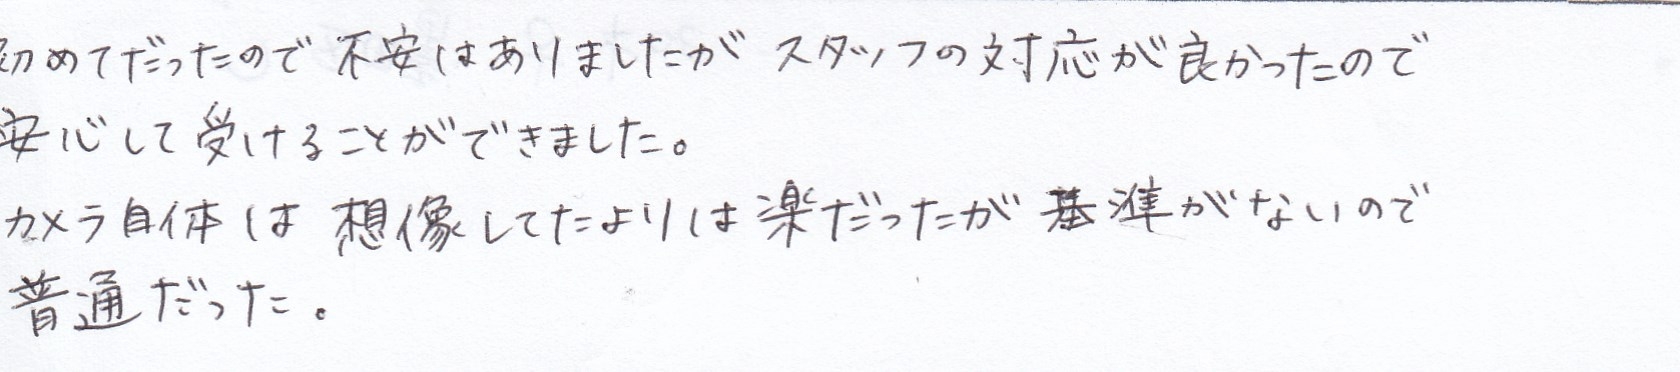 初めてだったので不安はありましたが スタッフの対応が良かったので
安心して受けることができました。
カメラ自体は想像してたよりは楽だったが基準がないので
普通だった。